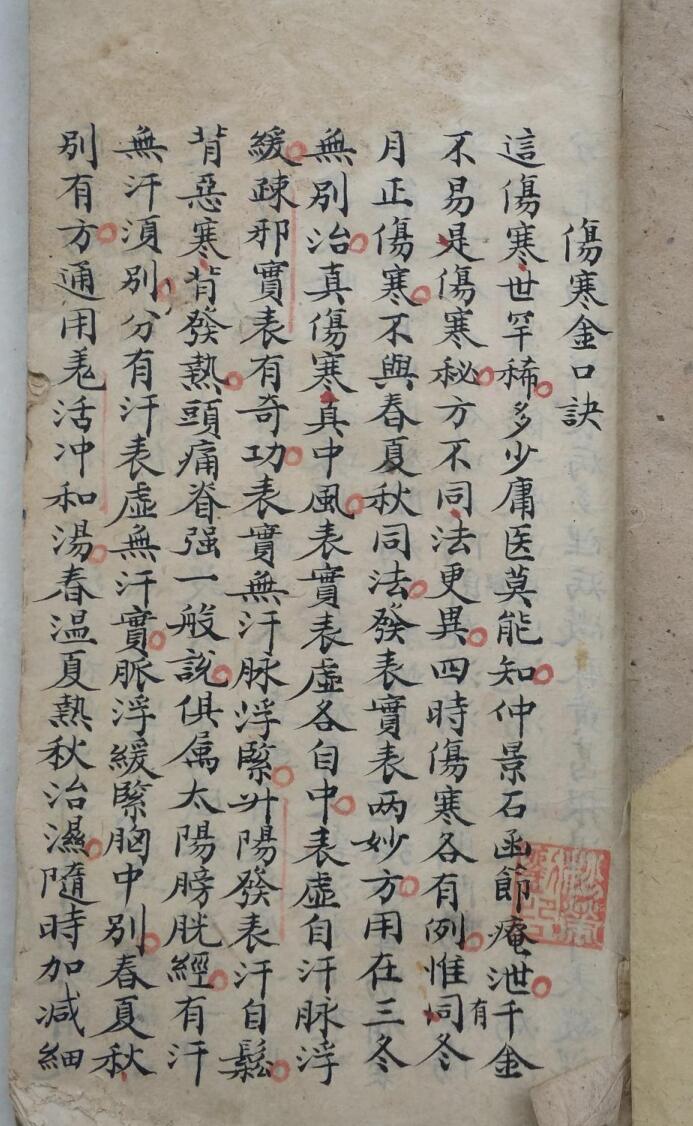 傷寒金口訣
這傷寒世罕稀多少庸医莫能知仲景石函節庵泄千金
不易是傷寒秘方不同法更異四時傷寒各有例惟同有冬
月正傷寒不與春夏秋同法發表實表两妙方用在三冬
無別治真傷寒真中風表實表虛各自中表虛自汗脉浮
緩疎邪實表有奇功表實無汗脉浮緊升陽發表汗自鬆
背惡寒背發熱頭痛脊强一般說俱属太陽膀胱經有汗
無汗湏別分有汗表虛無汗實脈浮緩緊胸中別春夏秋
別有方通用羗活冲和湯春温夏熱秋治濕隨時加减細